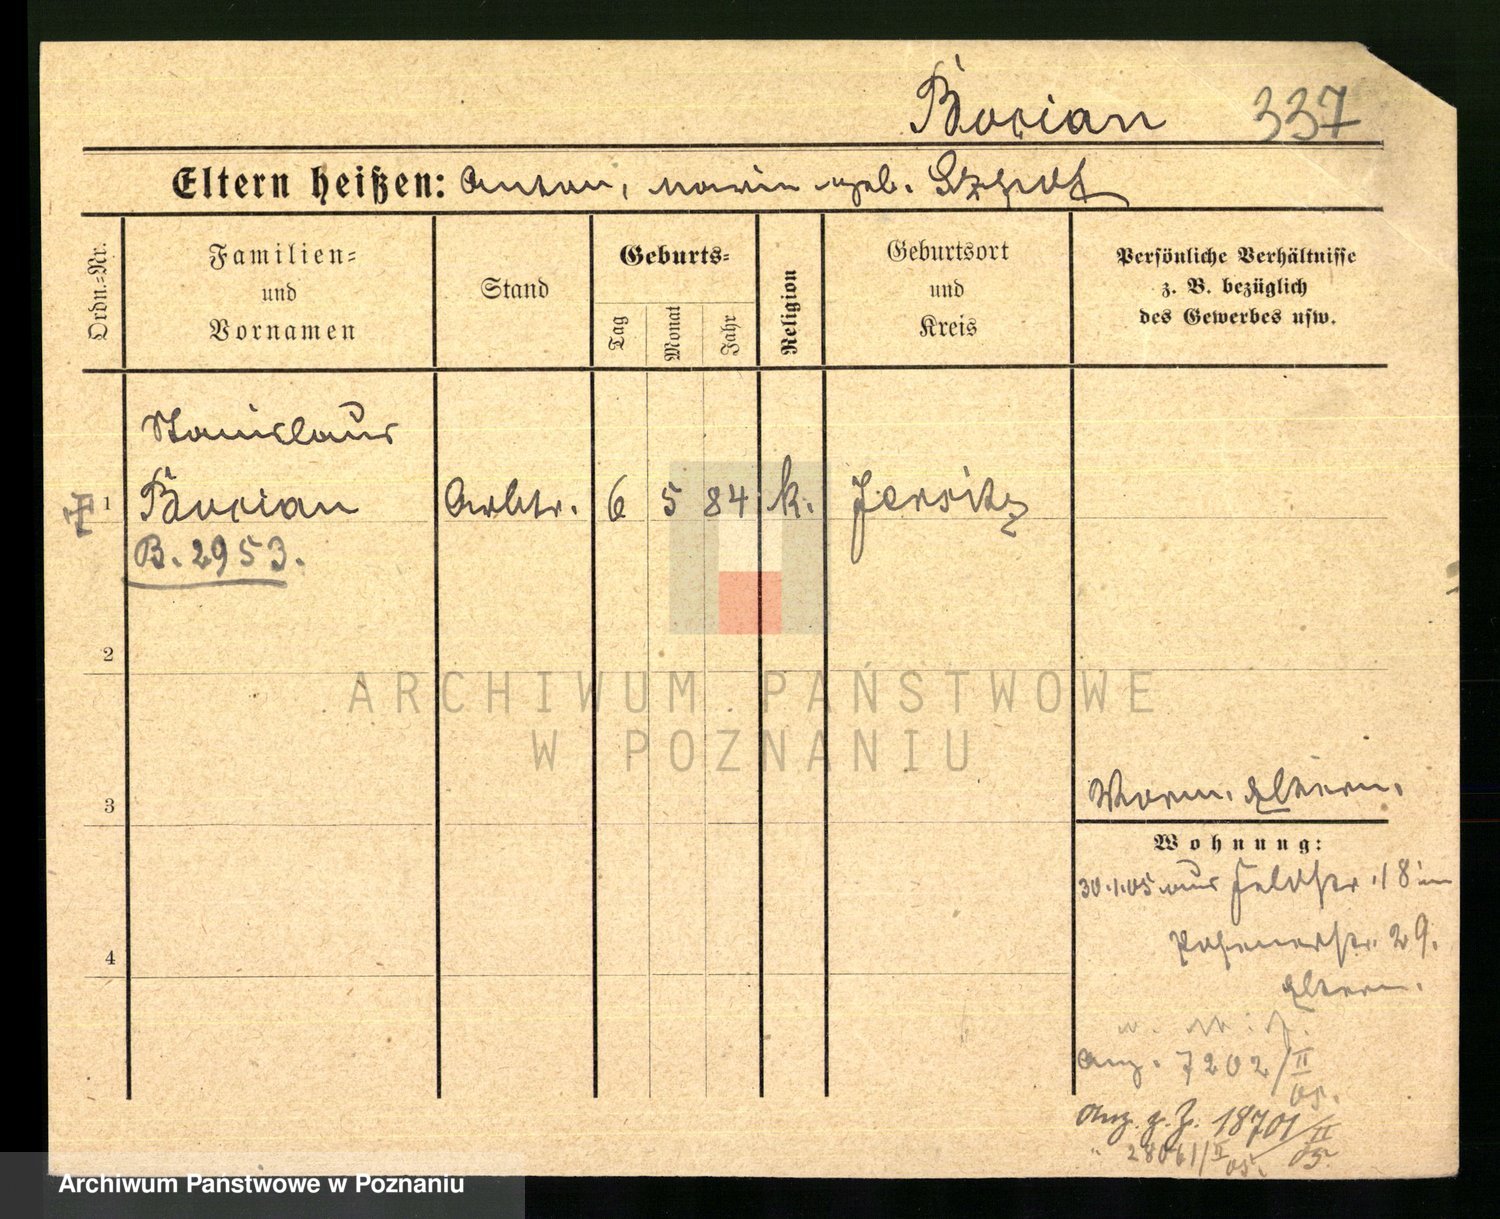 Bocian 337
Eltern heißen: Anton, Marie geb.
Ordn.-Nr.
Familien-
und
Vornamen
Stand
Geburts-
Tag
Monat
Jahr
Religion
Geburtsort
und
Kreis
Persönliche Verhältnisse
z. B. bezüglich
des Gewerbes usw.
Stanislaus
1 Bocian Arbtr. 6 5 84 k. Jersitz
B. 2953.
2
ARCHIWUM PAŃSTWOWE
W POZNANIU
3
Eltern.
Wohnung:
30.1.05 aus Feldstr. 18 in
Posenerstr. 29.
Eltern.
4
Anz. 7202/II
05.
Anz. z. Z. 18701/II
05.
" 28061/II
05.
Archiwum Państwowe w Poznaniu